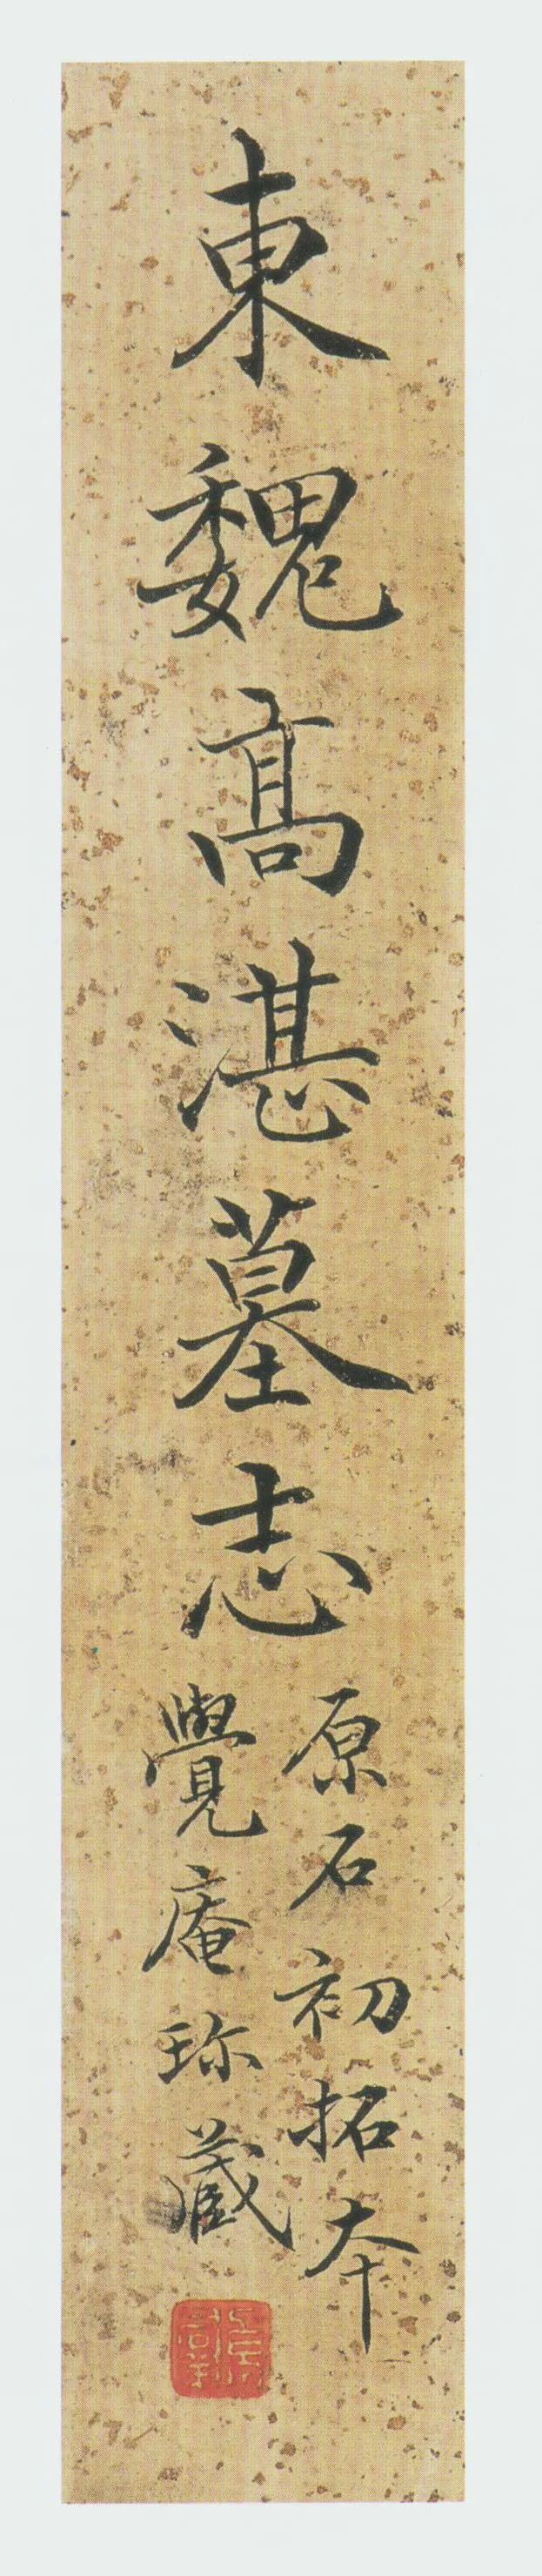 東魏高湛墓志
原石初拓本
覺庵珎蔵